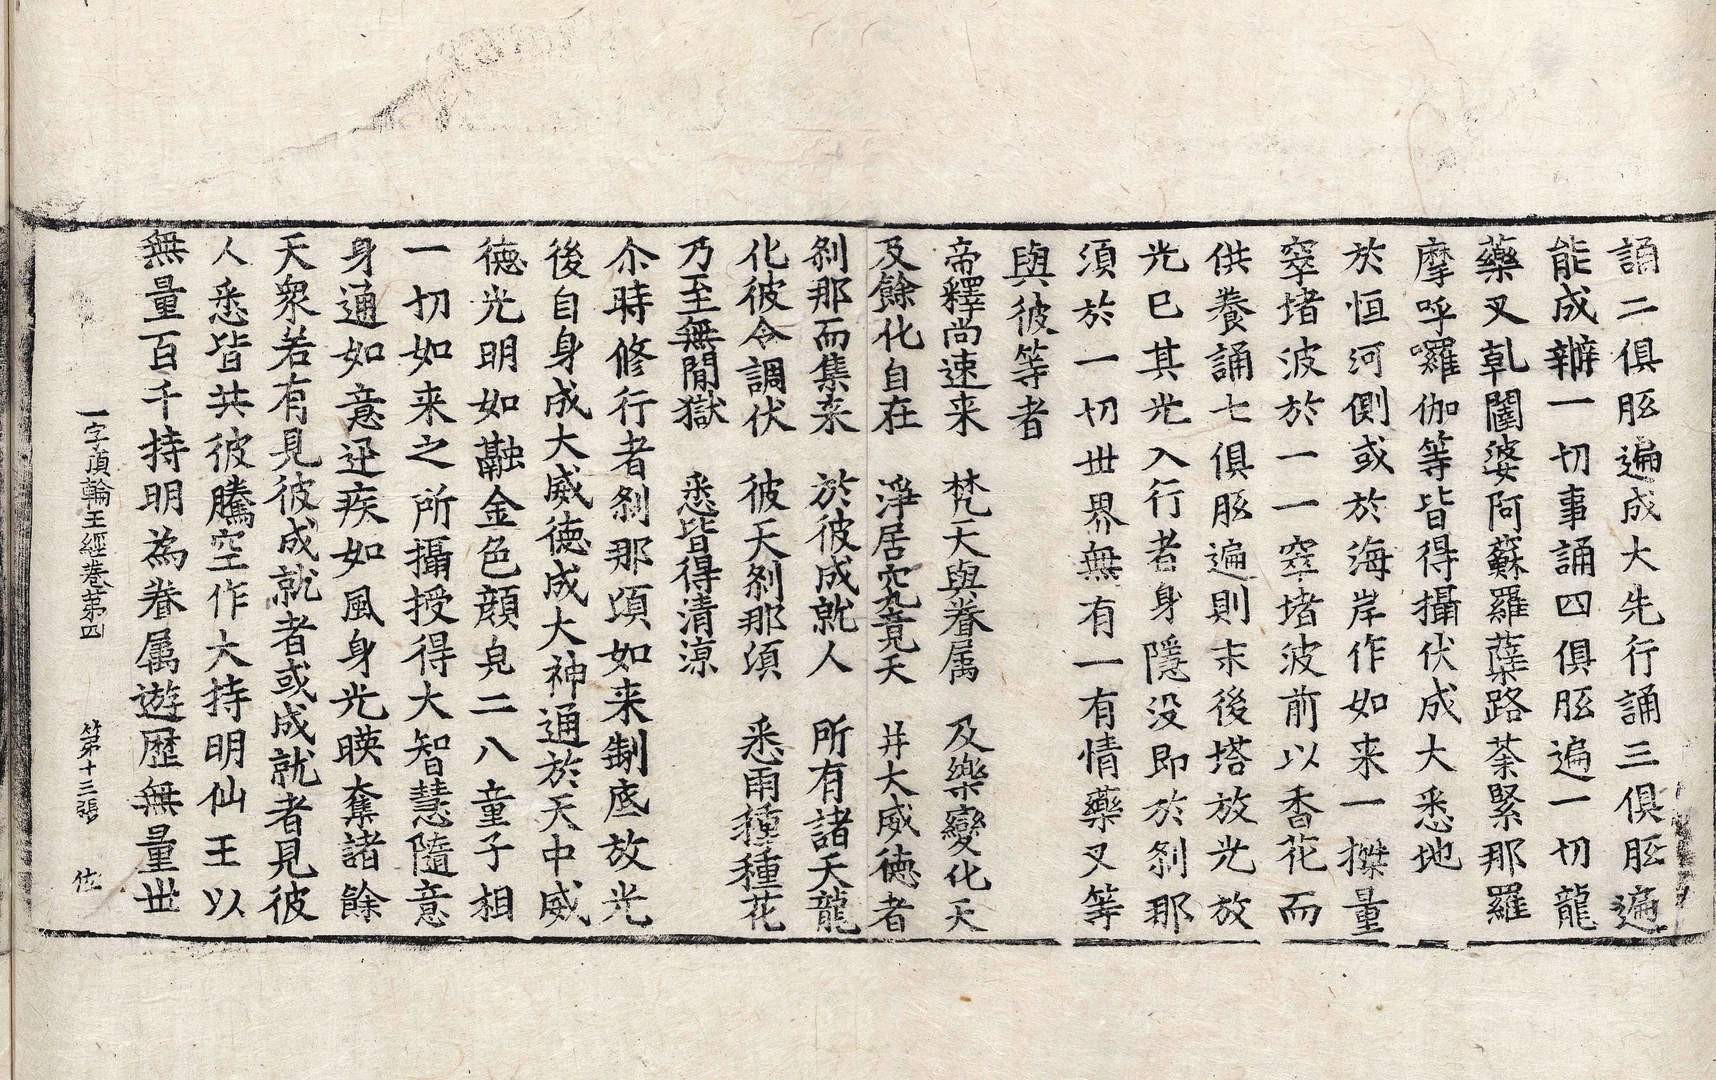 誦二俱胝遍成大先行誦三俱胝遍
能成辦一切事誦四俱胝遍一切龍
藥叉乹闥婆阿蘇羅蘗路荼緊那羅
摩呼囉伽等皆得攝伏成大悉地
於恒河側或於海岸作如来一搩量
窣堵波於一一窣堵波前以香花而
供養誦七俱胝遍則末後塔放光放
光已其光入行者身隱没即於刹那
須於一切世界無有一有情藥叉等
與彼等者
帝釋尚速来　梵天與眷属　及樂變化天
及餘化自在　淨居究竟天　并大威德者
刹那而集来　於彼成就人　所有諸天龍
化彼令調伏　彼天刹那須　悉雨種種花
乃至無間獄　悉皆得清涼
尒時修行者刹那頃如来制底放光
後自身成大威德成大神通於天中威
德光明如融金色顔皃二八童子相
一切如来之所攝授得大智慧隨意
身通如意迅疾如風身光暎奪諸餘
天衆若有見彼成就者或成就者見彼
人悉皆共彼騰空作大持明仙王以
無量百千持明為眷属遊歷無量世
一字頂輪王經卷第四　第十三張　佐